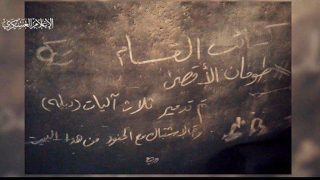 الإعلام العسكري
كتائب القسام
طوفان الأقصى
تم تدمير ثلاث آليات (دبابة)
والاشتباك مع الجنود من هذا البيت